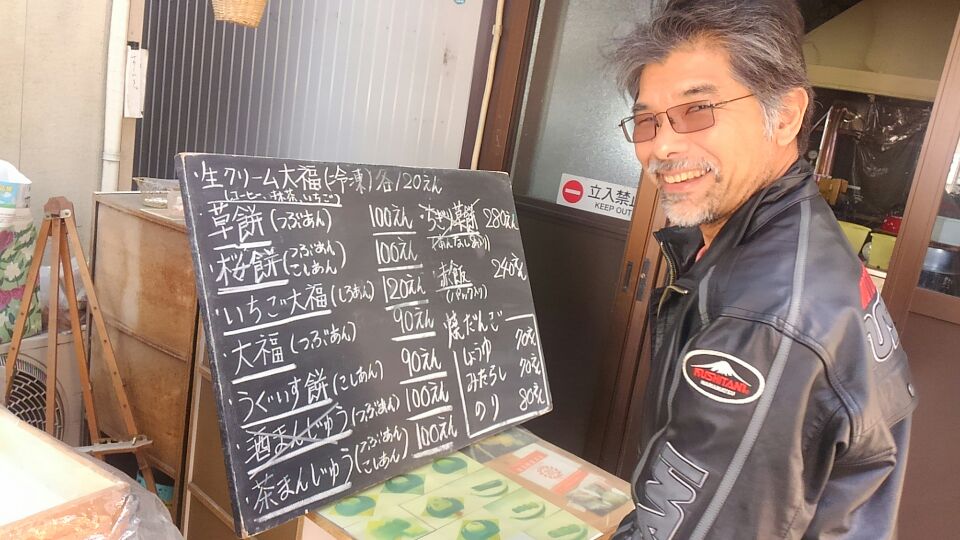 ・生クリーム大福(冷凍)各120えん
(コーヒー、抹茶、いちご)
・草餅(つぶあん) 100えん
・桜餅(つぶあん こしあん) 100えん
・いちご大福(しろあん) 120えん
・大福(つぶあん) 90えん
・うぐいす餅(こしあん) 90えん
・酒まんじゅう(つぶあん) 100えん
・茶まんじゅう(つぶあん こしあん) 100えん
・ちぎり草餅 280えん
・赤飯 240えん
(パック入り)
・焼だんご
しょうゆ 70えん
みたらし 70えん
のり 80えん
立入禁止
KEEP OUT
KUSHITANI